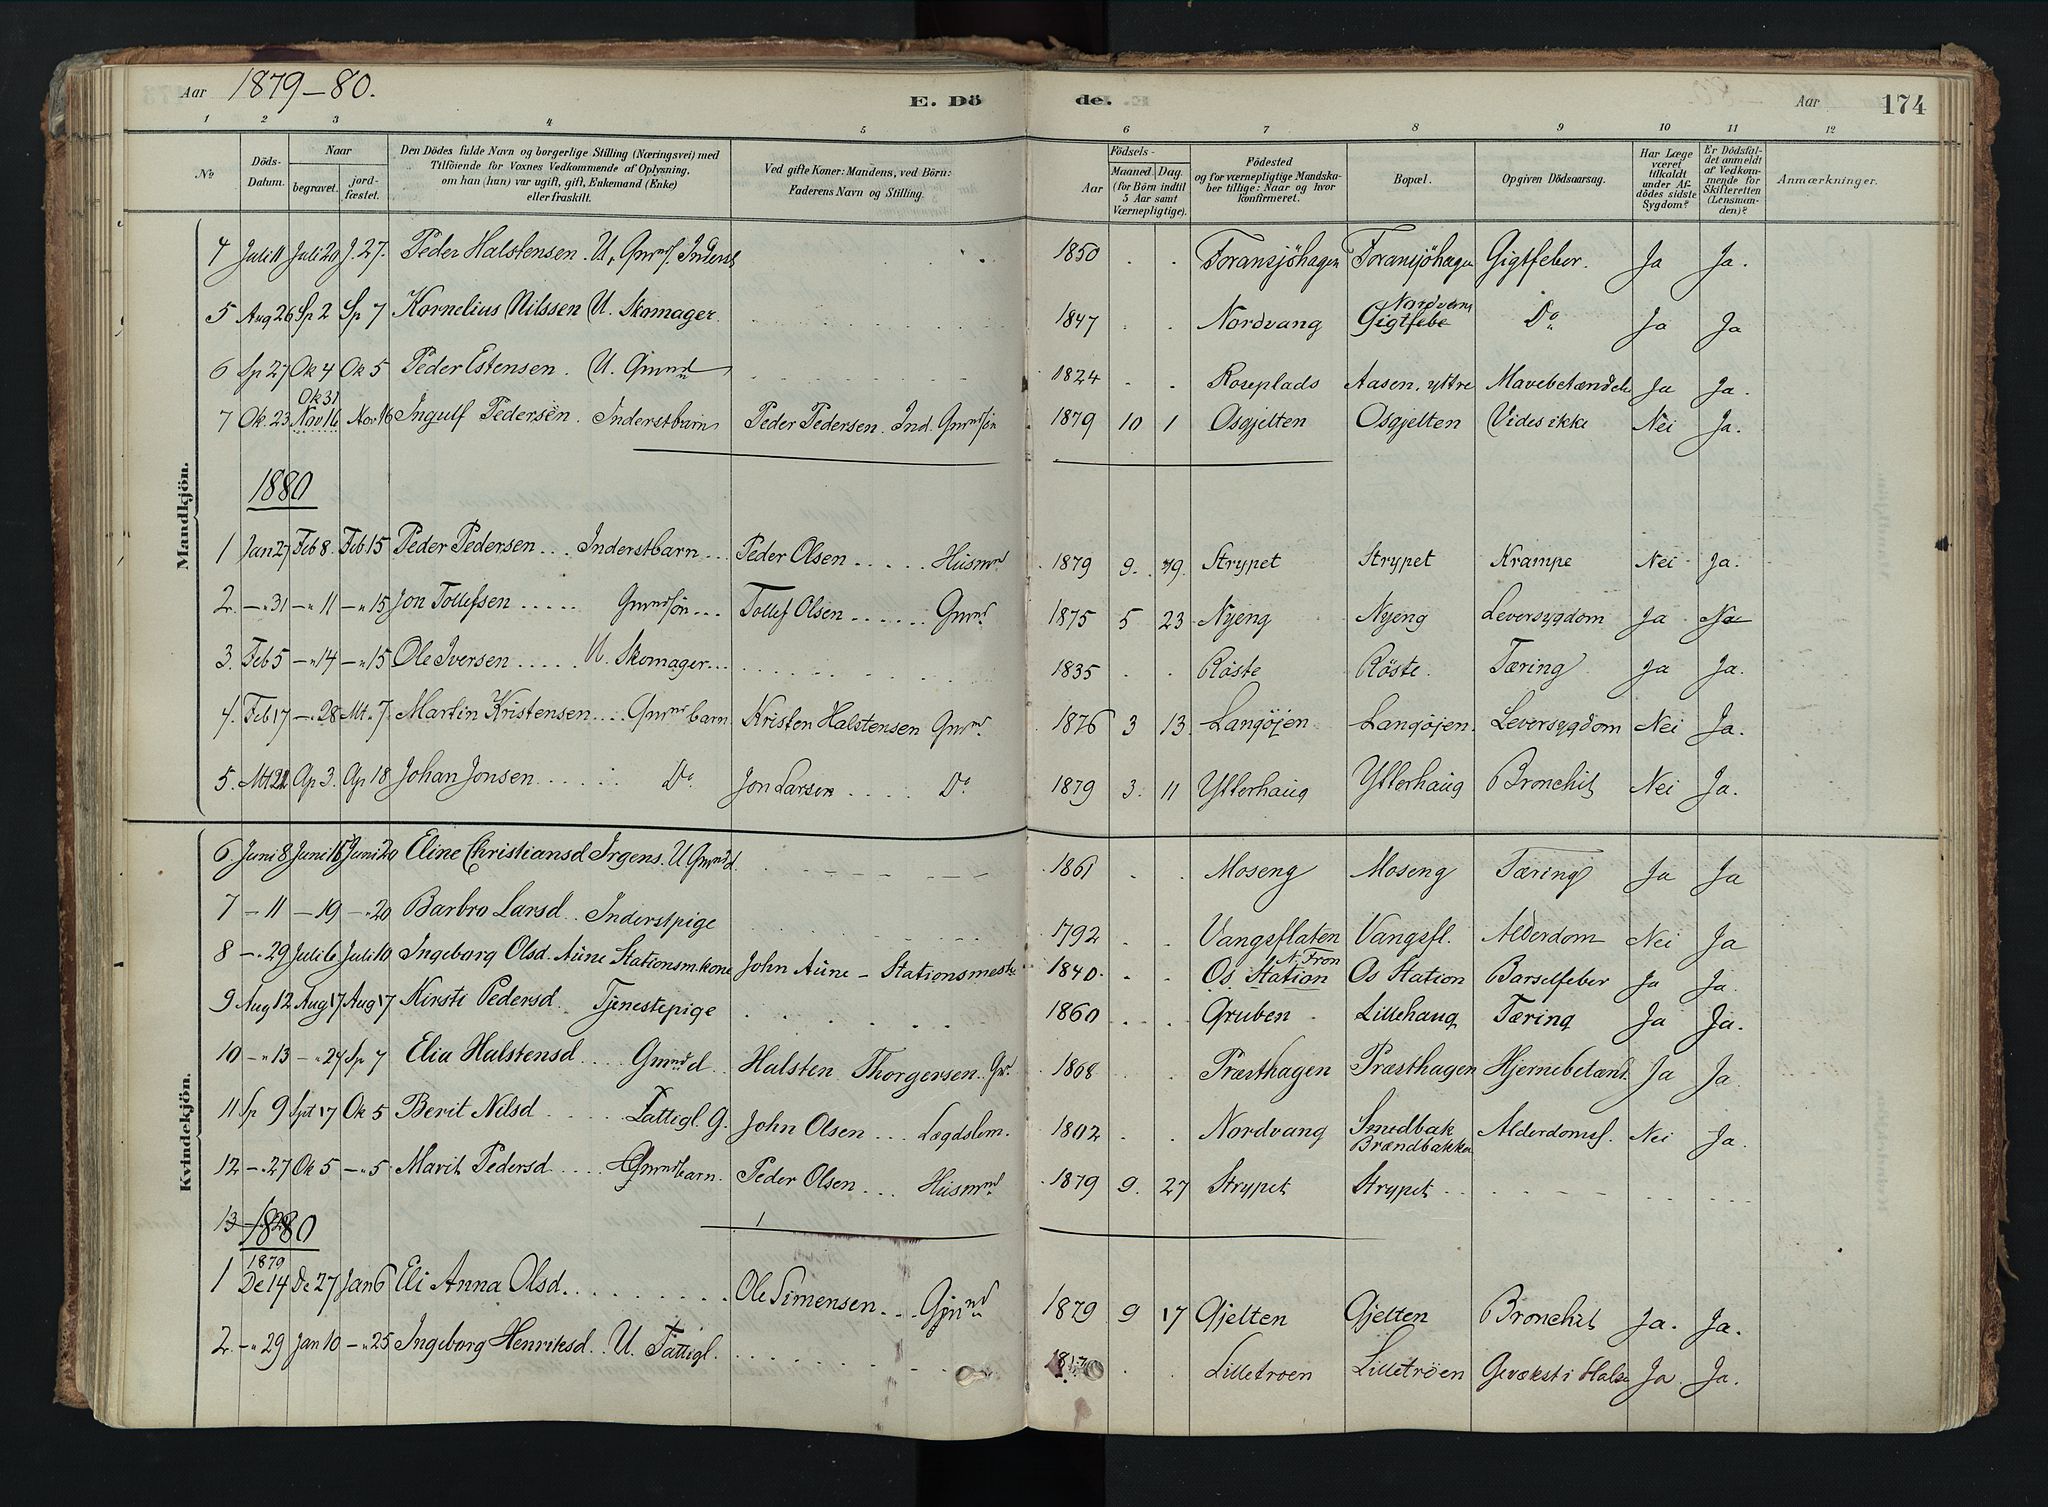 Aar 1879-80. E. Döde. Aar 174
1 2 3 4 5 6 7 8 9 10 11 12
No
Döds-Datum.
Naar
begravet.
jordfæstet.
Den Dödes fulde Navn og borgerlige Stilling (Næringsvei) med
Tilföiende for Voxnes Vedkommende af Oplysning,
om han (hun) var ugift, gift, Enkemand (Enke)
eller fraskilt.
Ved gifte Koner: Mandens, ved Börn:
Faderens Navn og Stilling.
Födsels-
Aar
Maaned. Dag.
(for Börn indtil
5 Aar samt
Værnepligtige).
Födested
og for værnepligtige Mandskaber tillige: Naar og hvor
konfirmeret.
Bopæl.
Opgiven Dödsaarsag.
Har Læge
været
tilkaldt
under Afdödes sidste
Sygdom?
Er Dödsfaldet anmeldt
af Vedkommende for
Skifteretten
(Lensmanden)?
Anmærkninger.
Mandkjön.
4 Juli 11 Juli 20 J. 27. Peder Halstensen. U, Gmds. Inderst 1850 Foransjöhagen Foransjöhagen Gigtfeber. Ja Ja.
5 Aug 26 Sp 2 Sp 7 Kornelius Nilssen U. Skomager 1847 Nordvang Nordvang Gigtfebe Do Ja Ja
6 Sp 27 Ok 4 Ok 5 Peder Estensen. U. Gmnd 1824 Roseplads Aasen, yttre Mavebetændels Ja Ja.
Ok 31
7 Ok. 23 Nov 16 Nov 16 Ingulf Pedersen Inderstbarn Peder Pedersen. Ind. Gmndsön 1879 10 1 Osgjelten Osgjelten Vides ikke Nei Ja.
1880
1 Jan 27 Feb 8. Feb 15 Peder Pedersen... Inderstbarn... Peder Olsen..... Husmd 1879 9. 19. Strypet Strypet Krampe Nei Ja.
2. -"31 -"11 -"15 Jon Tollefsen..... Gmndsön... Tollef Olsen...... Gmnd 1875 5 23 Nyeng Nyeng Leversygdom Ja
3. Feb 5 -"14 -"15 Ole Iversen..... U. Skomager... 1835 Röste Röste. Tæring Ja Ja.
4. Feb 17 -"28 Mt. 7 Martin Kristensen... Gmndbarn Kristen Halstensen Gmnd 1876 3 13 Langöjen Langöjen. Leversygdom Nei Ja.
5. Mt 22 Ap 3. Ap 18 Johan Jonsen...... Do Jon Larsen..... Do 1879 3. 11 Ytterhaug Ytterhaug Bronchit Nei Ja.
Kvindekjön.
6. Juni 8 Juni 15 Juni 20 Eline Christiansd Irgens. U Gmndd. 1861 Moseng Moseng Tæring Ja Ja
7 -11 -19 -"20 Barbro Larsd.. Inderstpige 1792 Vangsflaten Vangsfl. Alderdom Nei Ja
8 -"29 Juli 6 Juli 10 Ingeborg Olsd. Aune Stationsm.kone John Aune - Stationsmester 1840. N. Fron Os. Station Os Station Barselfeber Ja Ja.
9 Aug 12 Aug 17 Aug 17 Kirsti Pedersd. Tjenestepige 1860 Gruben Lillehaug Tæring Ja Ja.
10 -"13 -"24 Sp 7 Elia Halstensd... Gmndd Halsten Thorgersen.. Gmd. 1868 Præsthagen Præsthagen Hjernebetænd. Ja Ja.
11 Sp 9 Spt 17 Ok 5 Berit Nilsd.... Fattigl. G. John Olsen... Lægdslem. 1802 Nordvang Smedbak Brændbakken Alderdomss. Nei Ja.
12 -"27 Ok 5 -"5 Marit Pedersd.... Gmndbarn. Peder Olsen... Husmnd 1879 9. 27 Strypet Strypet
13
1880
1879
1 De 14 De 27 Jan 6 Eli Anna Olsd......... Ole Simensen... Gjmnd 1879 9 17 Gjelten Gjelten Bronchit Ja. Ja.
2. -"29 Jan 10 -"25 Ingeborg Henriksd.. U. Fattigl. Lilletroen Lilletröen Gevækst i Halse Ja. Ja.